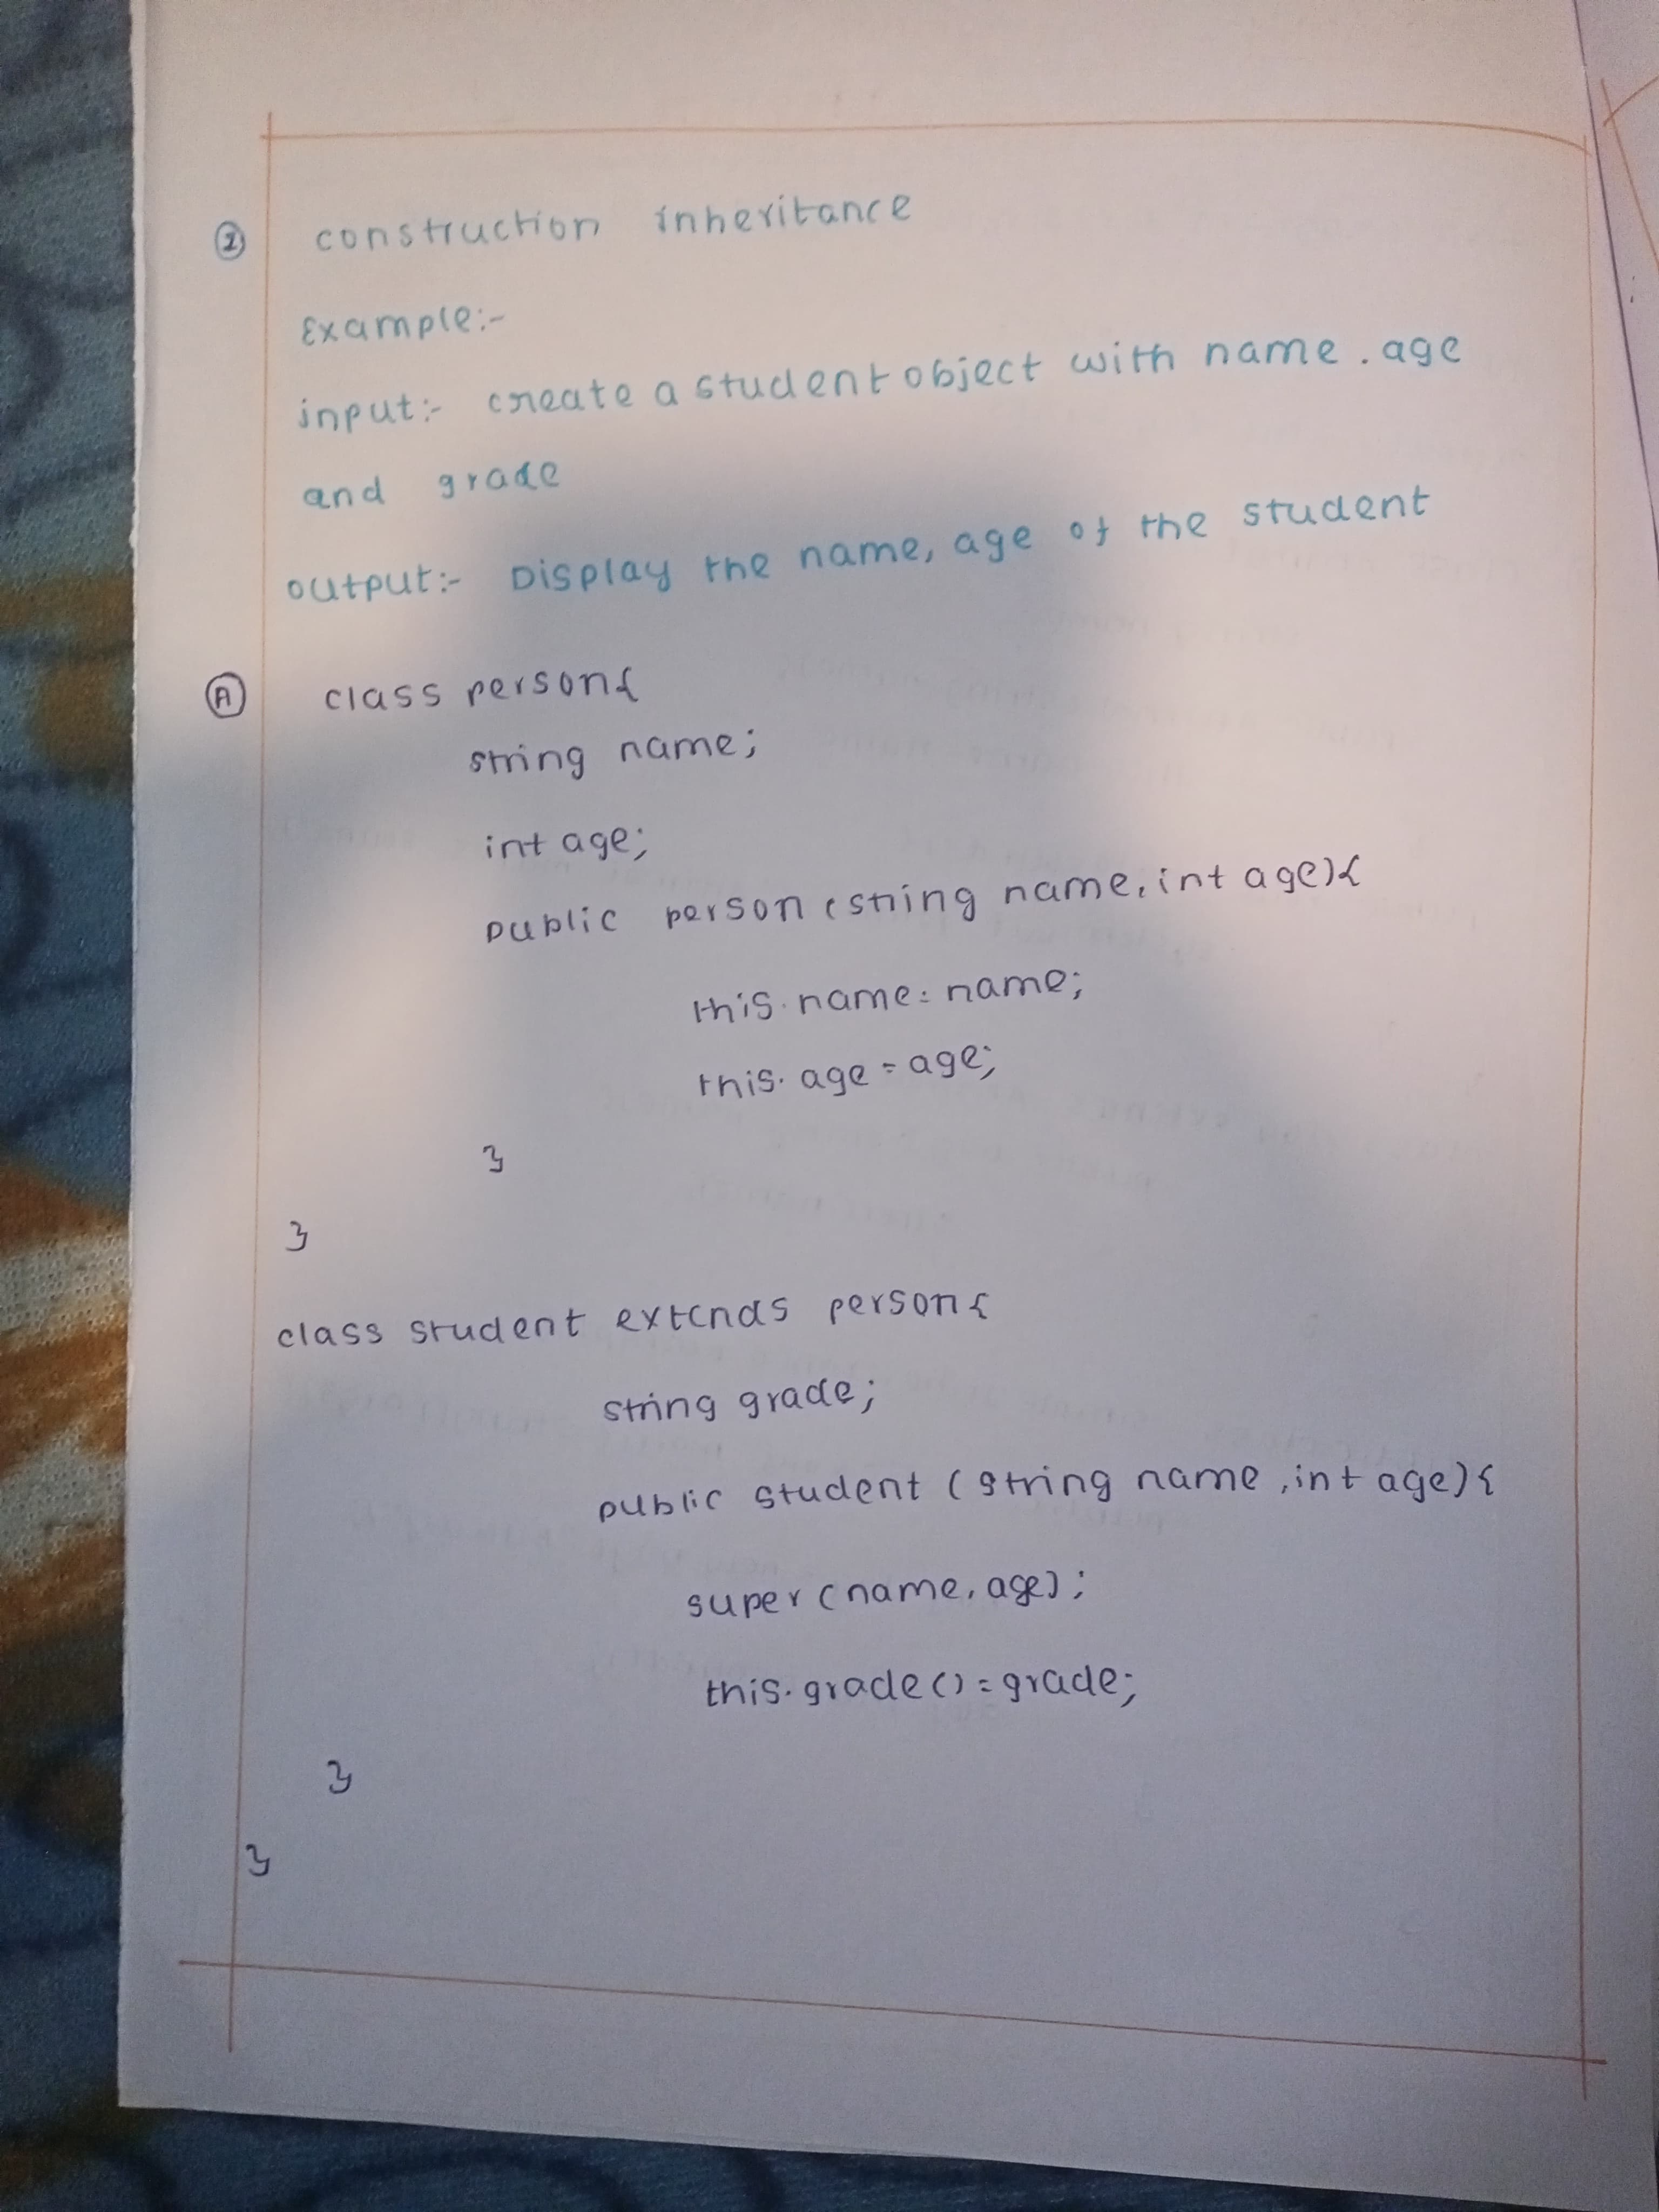 ② construction inheritance
Example:-
input:- create a student object with name . age
and grade
output:- Display the name, age of the student
Ⓐ class person{
string name;
int age;
public person (string name, int age){
this.name = name;
this.age = age;
}
}
class student extends person{
string grade;
public student (string name, int age){
super (name, age);
this.grade() = grade;
}
}